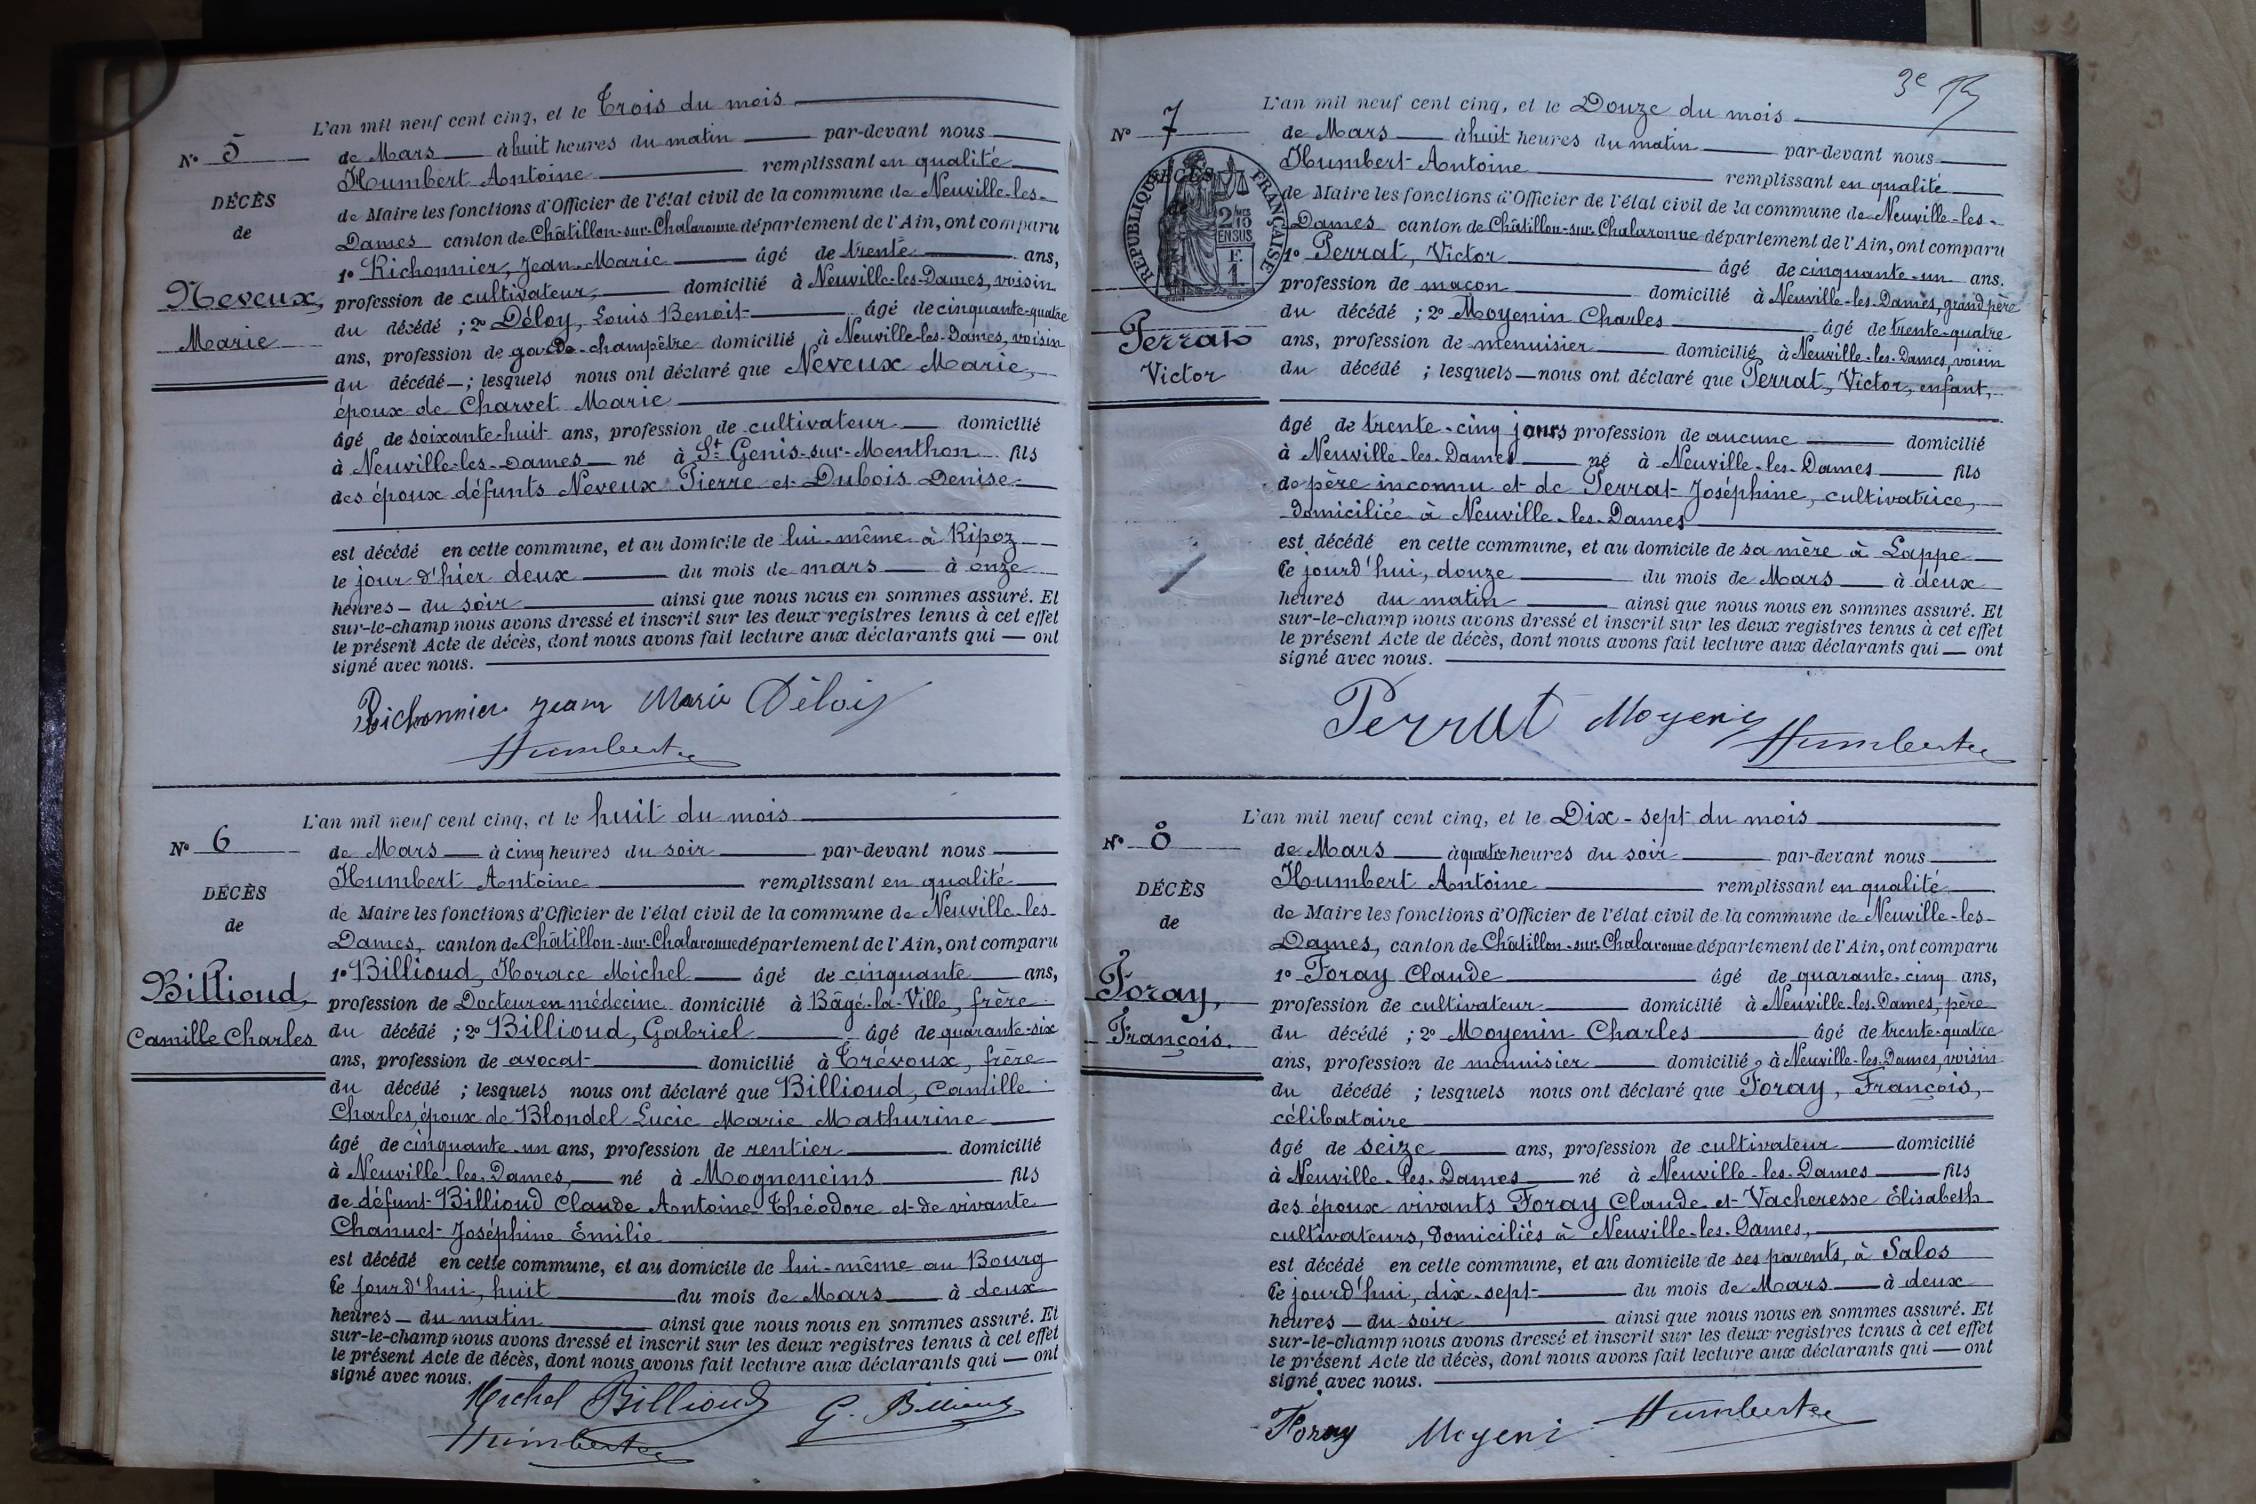 L'an mil neuf cent cinq, et le Trois du mois
N° 5
de Mars à huit heures du matin par-devant nous
Humbert Antoine remplissant en qualité
DÉCÈS
de Maire les fonctions d'Officier de l'état civil de la commune de Neuville-les-
de
Dames canton de Châtillon-sur-Chalaronne département de l'Ain, ont comparu
1° Richonnier, Jean-Marie âgé de trente ans,
Neveux,
profession de cultivateur, domicilié à Neuville-les-Dames, voisin
du décédé ; 2° Déloy, Louis Benoit âgé de cinquante-quatre
Marie
ans, profession de garde-champêtre domicilié à Neuville-les-Dames, voisin
du décédé ; lesquels nous ont déclaré que Neveux Marie,
époux de Charvet Marie
âgé de soixante-huit ans, profession de cultivateur domicilié
à Neuville-les-Dames né à St Genis-sur-Menthon fils
des époux défunts Neveux Pierre et Dubois Denise
est décédé en cette commune, et au domicile de lui-même à Ripoz
le jour d'hier deux du mois de mars à onze
heures du soir ainsi que nous nous en sommes assuré. Et
sur-le-champ nous avons dressé et inscrit sur les deux registres tenus à cet effet
le présent Acte de décès, dont nous avons fait lecture aux déclarants qui ont
signé avec nous.
Richonnier jean Marie Déloy
Humbert
L'an mil neuf cent cinq, et le huit du mois
N° 6
de Mars à cinq heures du soir par-devant nous
Humbert Antoine remplissant en qualité
DÉCÈS
de Maire les fonctions d'Officier de l'état civil de la commune de Neuville-les-
de
Dames, canton de Châtillon-sur-Chalaronne département de l'Ain, ont comparu
1° Billioud, Horace Michel âgé de cinquante ans,
Billioud,
profession de Docteur en médecine domicilié à Bâgé-la-Ville, frère
du décédé ; 2° Billioud, Gabriel âgé de quarante-six
Camille Charles
ans, profession de avocat domicilié à Trévoux, frère
du décédé ; lesquels nous ont déclaré que Billioud, Camille
Charles, époux de Blondel Lucie Marie Mathurine
âgé de cinquante-un ans, profession de rentier domicilié
à Neuville-les-Dames, né à Mogneneins fils
de défunt Billioud Claude Antoine Théodore et de vivante
Chanuet Joséphine Émilie
est décédé en cette commune, et au domicile de lui-même au Bourg
Ce jourd'hui, huit du mois de Mars à deux
heures du matin ainsi que nous nous en sommes assuré. Et
sur-le-champ nous avons dressé et inscrit sur les deux registres tenus à cet effet
le présent Acte de décès, dont nous avons fait lecture aux déclarants qui ont
signé avec nous.
Michel Billioud G. Billioud
Humbert
3e
L'an mil neuf cent cinq, et le Douze du mois
N° 7
de Mars à huit heures du matin par-devant nous
Humbert Antoine remplissant en qualité
DÉCÈS
RÉPUBLIQUE FRANÇAISE
2/10 EN SUS
F. 1
de Maire les fonctions d'Officier de l'état civil de la commune de Neuville-les-
de
Dames canton de Châtillon-sur-Chalaronne département de l'Ain, ont comparu
1° Perrat, Victor âgé de cinquante-un ans.
profession de maçon domicilié à Neuville-les-Dames, grand père
du décédé ; 2° Moyenin Charles âgé de trente-quatre
Perrat
ans, profession de menuisier domicilié à Neuville-les-Dames, voisin
Victor
du décédé ; lesquels nous ont déclaré que Perrat, Victor, enfant,
âgé de trente-cinq jours profession de aucune domicilié
à Neuville-les-Dames né à Neuville-les-Dames fils
de père inconnu et de Perrat Joséphine, cultivatrice,
domiciliée à Neuville-les-Dames
est décédé en cette commune, et au domicile de sa mère à Lappe
Ce jourd'hui, douze du mois de Mars à deux
heures du matin ainsi que nous nous en sommes assuré. Et
sur-le-champ nous avons dressé et inscrit sur les deux registres tenus à cet effet
le présent Acte de décès, dont nous avons fait lecture aux déclarants qui ont
signé avec nous.
Perrat Moyeni Humbert
L'an mil neuf cent cinq, et le Dix-sept du mois
N° 8
de Mars à quatre heures du soir par-devant nous
Humbert Antoine remplissant en qualité
DÉCÈS
de Maire les fonctions d'Officier de l'état civil de la commune de Neuville-les-
de
Dames, canton de Châtillon-sur-Chalaronne département de l'Ain, ont comparu
1° Foray Claude âgé de quarante-cinq ans,
Foray,
profession de cultivateur domicilié à Neuville-les-Dames, père
du décédé ; 2° Moyenin Charles âgé de trente-quatre
François.
ans, profession de menuisier domicilié à Neuville-les-Dames, voisin
du décédé ; lesquels nous ont déclaré que Foray, François,
célibataire
âgé de seize ans, profession de cultivateur domicilié
à Neuville-les-Dames né à Neuville-les-Dames fils
des époux vivants Foray Claude et Vacheresse Élisabeth
cultivateurs, domiciliés à Neuville-les-Dames,
est décédé en cette commune, et au domicile de ses parents, à Salos
Ce jourd'hui, dix-sept du mois de Mars à deux
heures du soir ainsi que nous nous en sommes assuré. Et
sur-le-champ nous avons dressé et inscrit sur les deux registres tenus à cet effet
le présent Acte de décès, dont nous avons fait lecture aux déclarants qui ont
signé avec nous.
Foray Moyeni Humbert